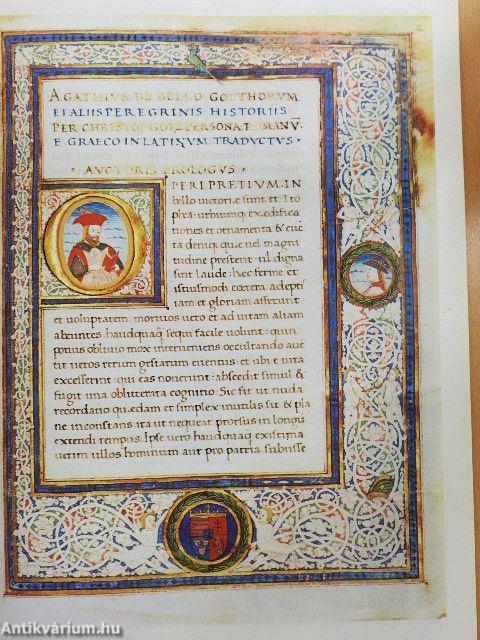 AGATHIUS DE BELLO GOTTHORVM
ET ALIIS PEREGRINIS HISTORIIS
PER CHRISTOPHORV PERSONA ROMANV̄
E GRAECO IN LATINVM TRADVCTVS ·
· AVCTORIS PROLOGVS ·
O PERIPRETIVM. IN
bello uictorię sunt et Tro
phęa: urbiumq; exędifica
tiones et ornamenta & cūc
ta deniq; quę uel magni
tudine prestent uĺ digna
sint laude: hęc ferme et
istiusmodi cœtera adepti
am et gloriam afferunt
et uoluptatem. mortuos uero et ad uitam aliam
abeuntes haudquaq̄ sequi facile uolunt: quin
potius obliuio mox interueniens occultando auer
tit ueros rerum gestarum euentus. et ubi e uita
excesserint qui eas nouerunt: abscedit simul &
fugit una obliterata cognitio. Sic fit ut nuda
recordatio quędam et simplex inutilis sit & pla
ne inconstans ita ut nequeat prorsus in longū
extendi tempus. Ipse uero haudquaq̄ existima
uerim ullos hominum aut pro patria subisse
Antikvárium.hu